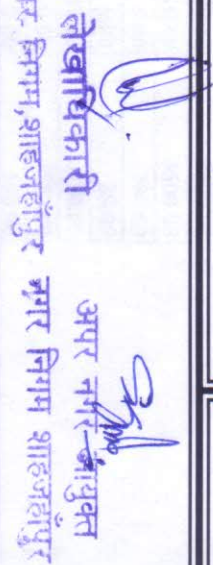 लेखाधिकारी
नगर निगम,शाहजहाँपुर
अपर नगर आयुक्त
नगर निगम शाहजहाँपुर